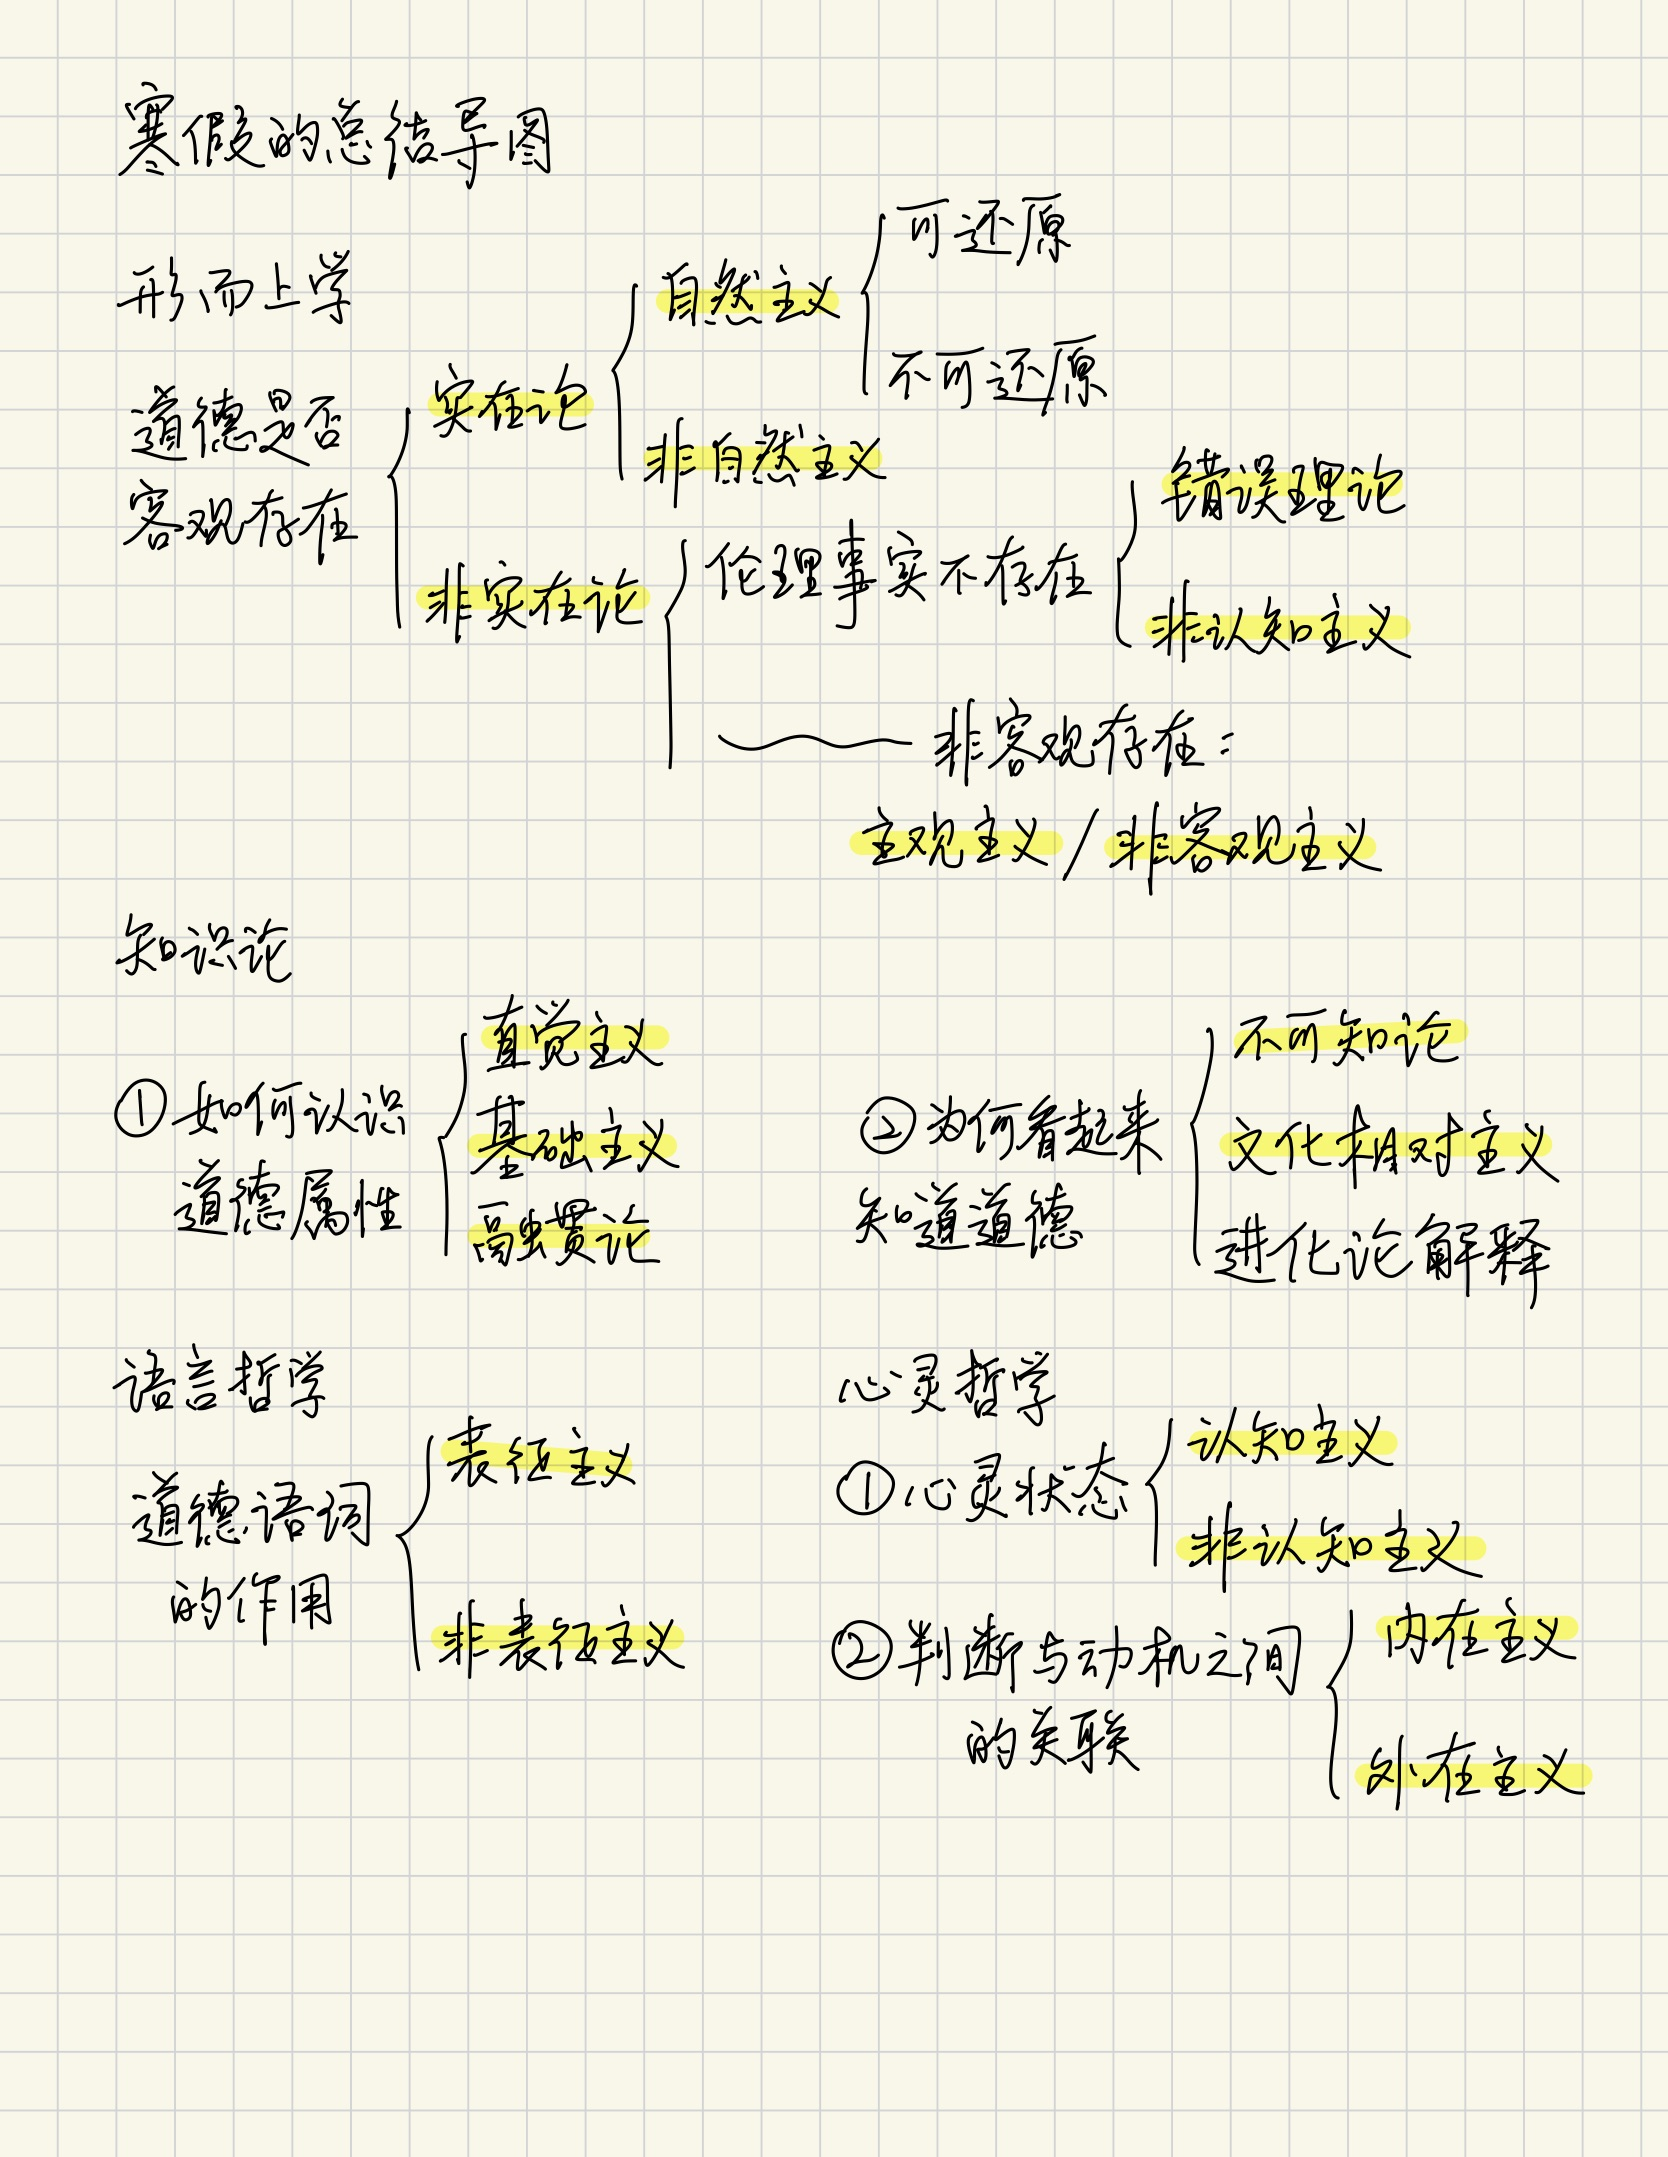 寒假的总结导图
形而上学
道德是否
客观存在
实在论
自然主义
可还原
不可还原
非自然主义
非实在论
伦理事实不存在
错误理论
非认知主义
非客观存在：
主观主义/非客观主义
知识论
①如何认识
道德属性
直觉主义
基础主义
融贯论
②为何看起来
知道道德
不可知论
文化相对主义
进化论解释
语言哲学
道德语词
的作用
表征主义
非表征主义
心灵哲学
①心灵状态
认知主义
非认知主义
②判断与动机之间
的关联
内在主义
外在主义